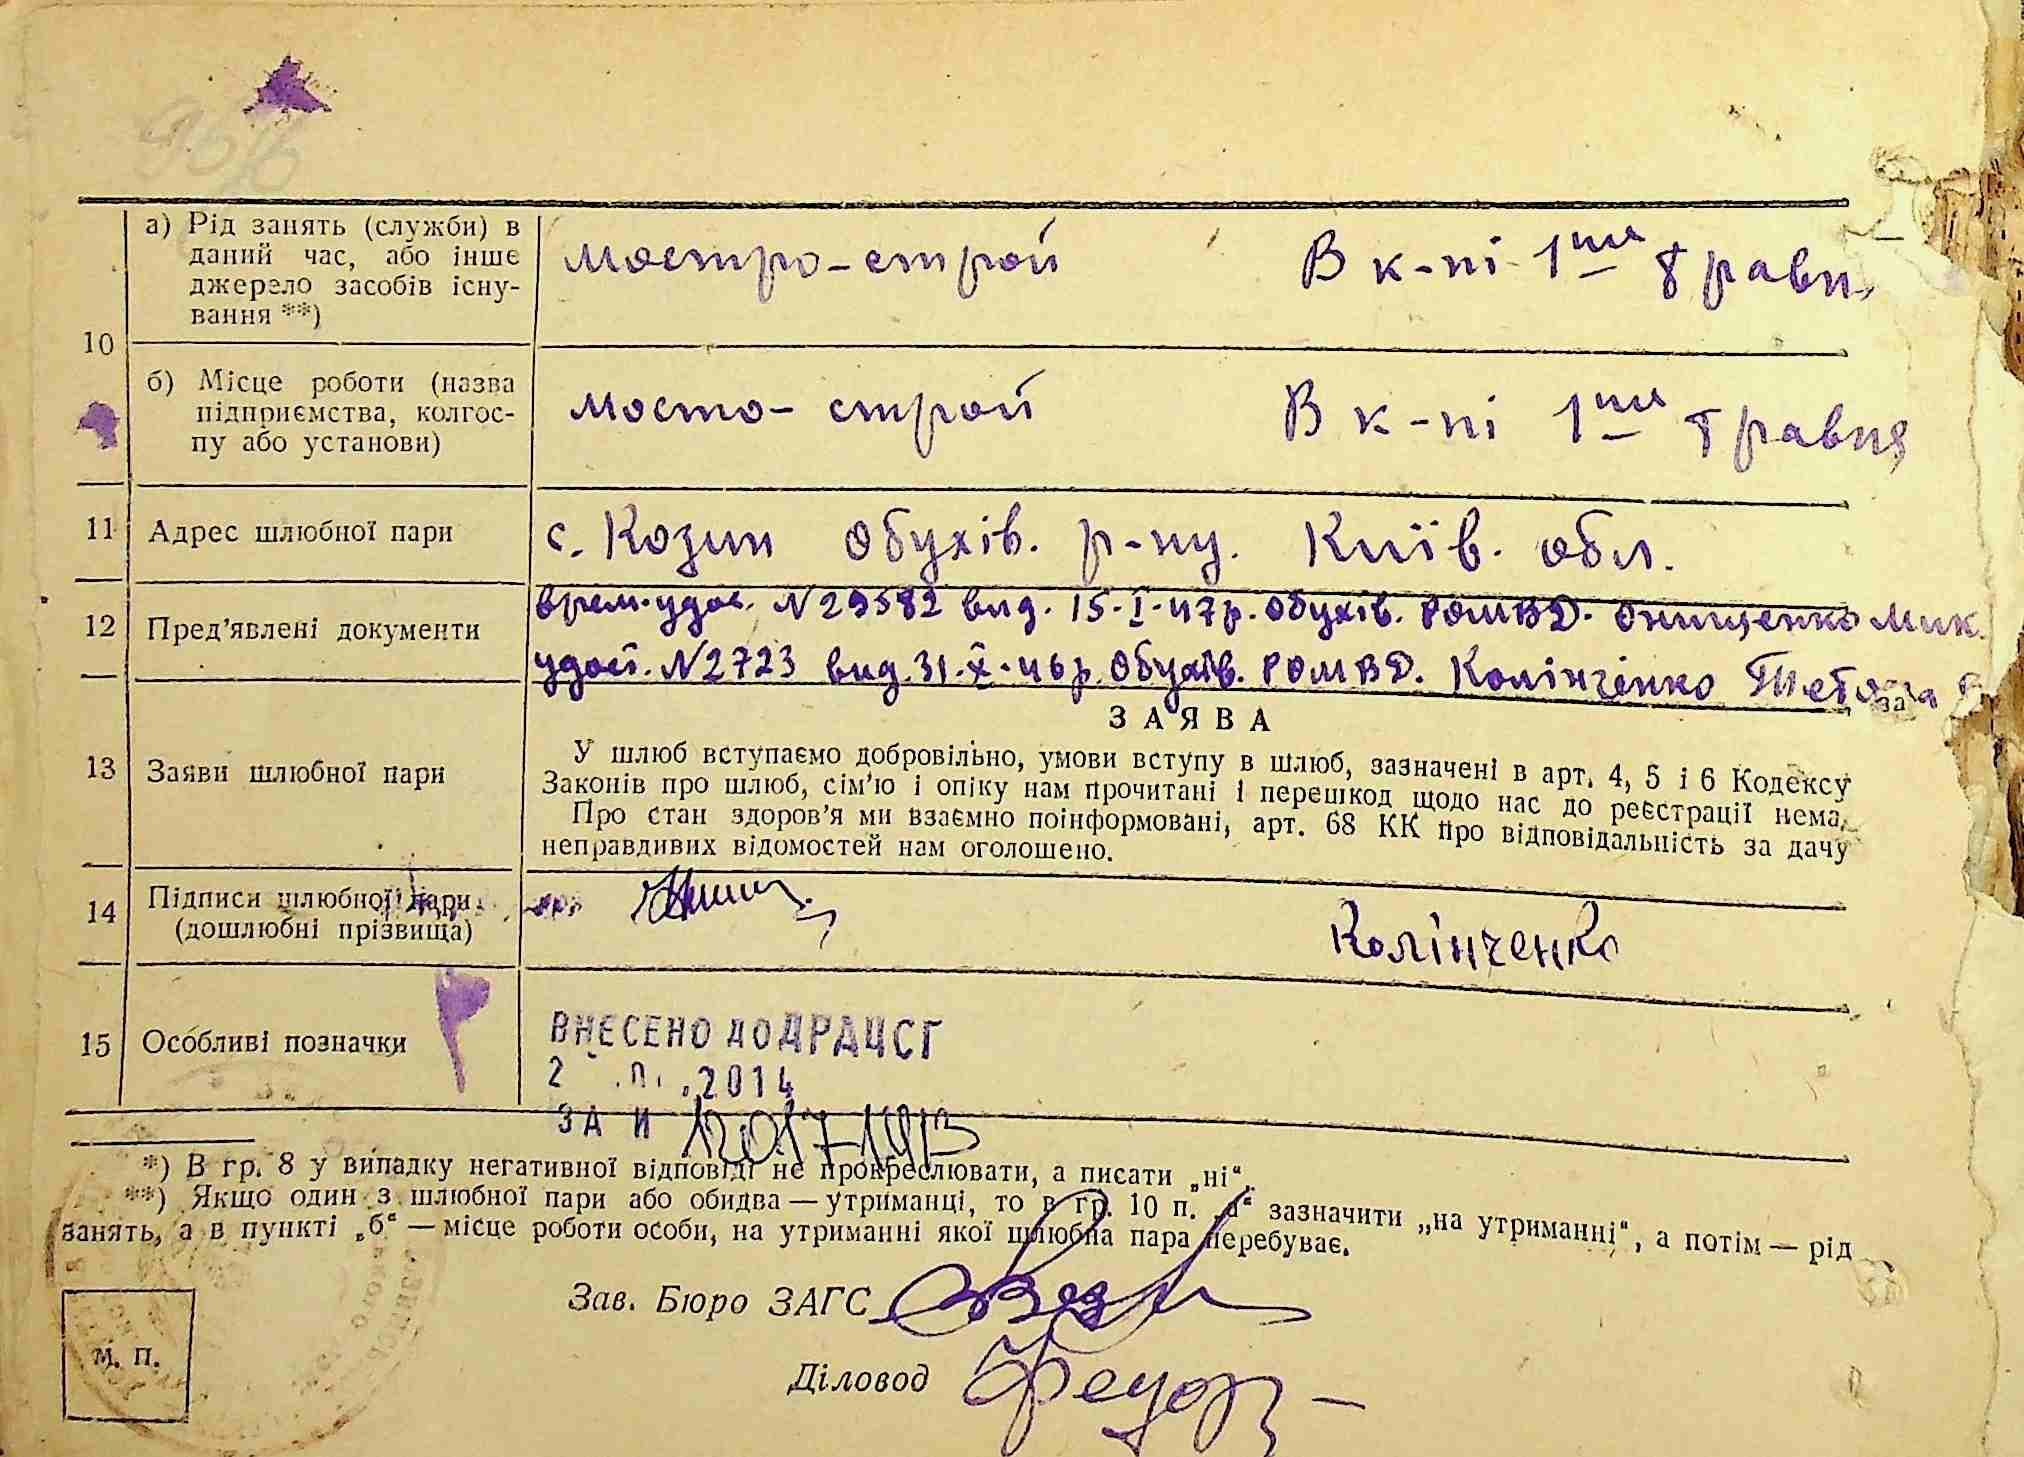 10
а) Рід занять (служби) в
даний час, або інше
джерело засобів існу-
вання **)
мостро-строй В к-пі 1ша Травн
б) Місце роботи (назва
підприємства, колгос-
пу або установи)
мосто-строй В к-пі 1ша травня
11 Адрес шлюбної пари
с. Козин Обухів. р-ну. Київ. обл.
12 Пред'явлені документи
врем. удос. N29582 вид. 15-I-47р. Обухів. РОМВД. Онищенко Мик.
удост. N2723 вид. 31-X-46р. Обухів. РОМВД. Колінченко Тетяна
за
13 Заяви шлюбної пари
ЗАЯВА
У шлюб вступаємо добровільно, умови вступу в шлюб, зазначені в арт. 4, 5 і 6 Кодексу
Законів про шлюб, сім'ю і опіку нам прочитані і перешкод щодо нас до реєстрації нема.
Про стан здоров'я ми взаємно поінформовані, арт. 68 КК про відповідальність за дачу
неправдивих відомостей нам оголошено.
14 Підписи шлюбної пари
(дошлюбні прізвища)
Колінченко
15 Особливі позначки
ВНЕСЕНО до ДРАЦСГ
2014
ЗА И
*) В гр. 8 у випадку негативної відповіді не прокреслювати, а писати „ні“.
**) Якщо один з шлюбної пари або обидва — утриманці, то в гр. 10 п. „а“ зазначити „на утриманні“, а потім — рід
занять, а в пункті „б“ — місце роботи особи, на утриманні якої шлюбна пара перебуває.
Зав. Бюро ЗАГС
Діловод
М. П.